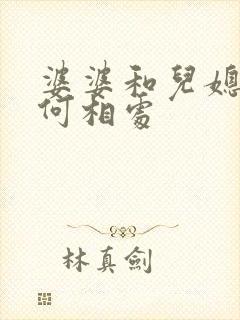 婆婆和兒媳
何相處
林真劍